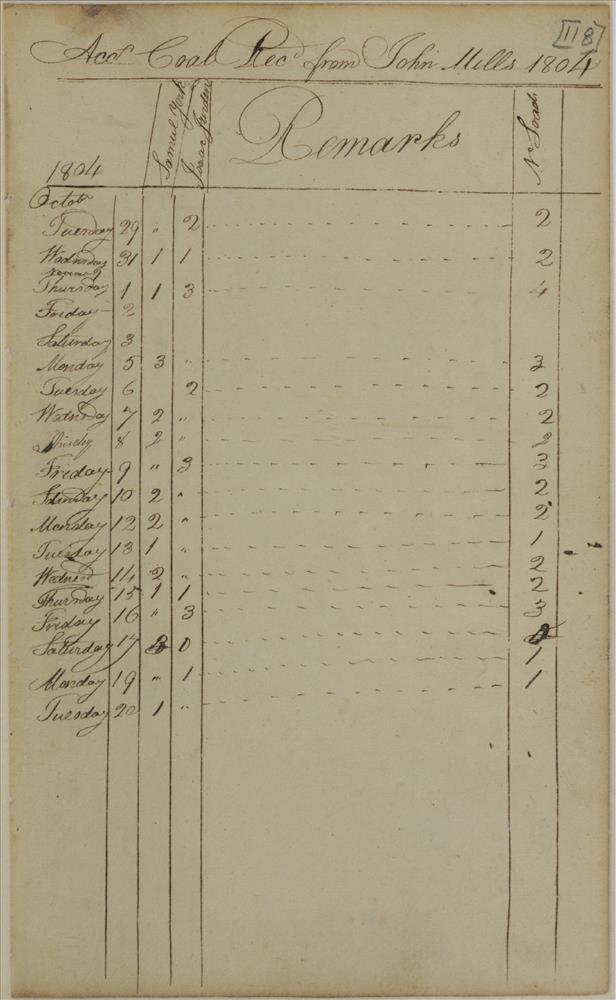 [118]
Acct Coal Recd from John Mills 1804
1804 Samuel York Isaac Jurden Remarks No Loads
Octobr
Tuesday 29 " 2 2
Wednesday 31 1 1 2
Novem
Thursday 1 1 3 4
Friday 2
Saturday 3
Monday 5 3 " 3
Tuesday 6 2 2
Wednsday 7 2 " 2
8 2 " 2
Friday 9 " 3 3
10 2 " 2
Monday 12 2 " 2
Tuesday 13 1 " 1
Wednesd 14 2 " 2
Thursday 15 1 1 2
Friday 16 " 3 3
Saturday 17 0
Monday 19 " 1 1
Tuesday 20 1 " 1